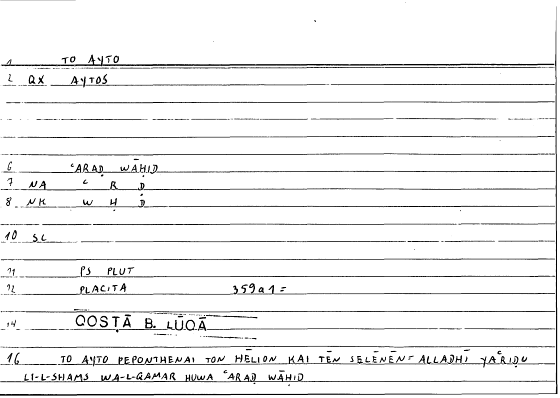 1 TO AYTO
2 QX AYTOS
6 ʿARAḌ WĀḤID
7 NA ʿ R Ḍ
8 NK W Ḥ D
10 SL
11 PS PLUT
12 PLACITA 359a1=
14 QOSṬĀ B. LŪQĀ
16 TO AYTO PEPONTHENAI TON HĒLION KAI TĒN SELĒNĒN= ALLADHĪ YAʿRIḌU
LI-L-SHAMS WA-L-QAMAR HUWA ʿARAḌ WĀḤID